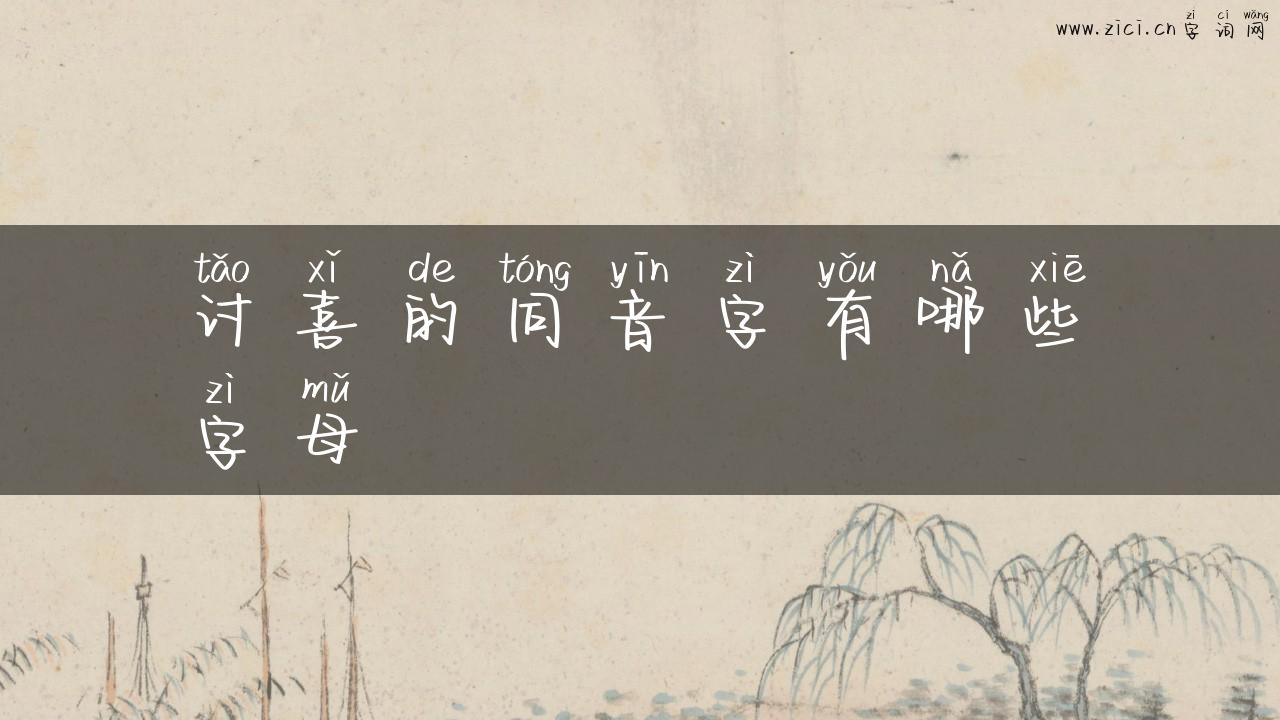 zì cí wǎng
www.zici.cn 字 词 网
tǎo xǐ de tóng yīn zì yǒu nǎ xiē
讨 喜 的 同 音 字 有 哪 些
zì mǔ
字 母